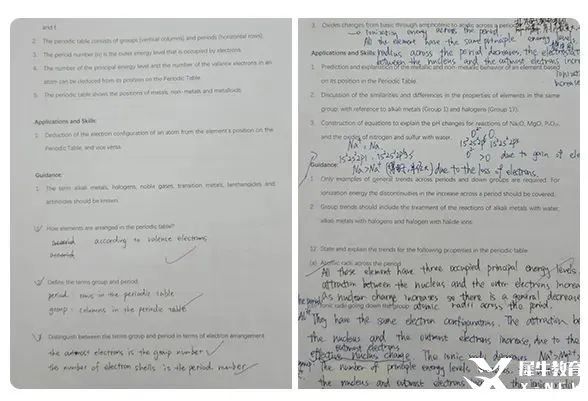 and f.
2. The periodic table consists of groups (vertical columns) and periods (horizontal rows).
3. The period number (n) is the outer energy level that is occupied by electrons.
4. The number of the principal energy level and the number of the valence electrons in an
atom can be deduced from its position on the Periodic Table.
5. The periodic table shows the positions of metals, non-metals and metalloids.
Applications and Skills:
1. Deduction of the electron configuration of an atom from the element's position on the
Periodic Table, and vice versa.
Guidance:
1. The term alkali metals, halogens, noble gases, transition metals, lanthanoids and
actinoids should be known.
How elements are arranged in the periodic table?
according to valence electrons
Define the terms group and period.
period: rows in the periodic table
group: columns in the periodic table
Distinguish between the terms group and period in terms of electron arrangement
the outmost electrons is the group number
the number of electron shells is the period number
3. Oxides changes from basic through amphoteric to acidic across a period
Ionization energy across the period
All the element have the same principle energy level,
Applications and Skills: radius across the period decreases, the
between the nucleus and the outmost electrons
1. Prediction and explanation of the metallic and non-metallic behavior of an element based
on its position in the Periodic Table.
2. Discussion of the similarities and differences in the properties of elements in the same
group, with reference to alkali metals (Group 1) and halogens (Group 17).
3. Construction of equations to explain the pH changes for reactions of Na₂O, MgO, P₄O₁₀,
and the oxides of nitrogen and sulfur with water.
due to gain of
Guidance: due to the loss of electrons.
1. Only examples of general trends across periods and down groups are required. For
ionization energy the discontinuities in the increase across a period should be covered.
2. Group trends should include the treatment of the reactions of alkali metals with water,
alkali metals with halogens and halogen with halide ions.
12. State and explain the trends for the following properties in the periodic table:
(a) Atomic radii across the period
All these element have three occupied principal energy levels
attraction between the nucleus and the outer electrons
As nuclear charge increases so there is a general
atomic radii across the period.
Ionic radii going down the group
They have the same electron configurations. The attraction
the nucleus and the outmost increase, due to the
outmost electrons
effective nucleus charge. The ionic
The number of principle energy levels
the nucleus and outmost electrons
犀牛教育